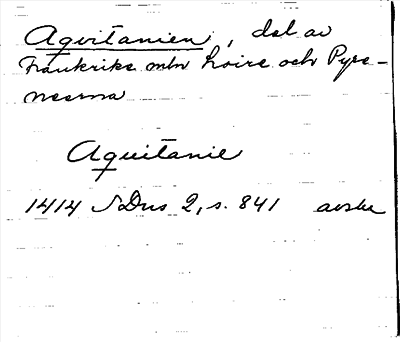 Aqvitanien, del av
Frankrike mln Loire och Pyre-
neerna
Aquitanie
1414 SDns 2, s. 841 avskr